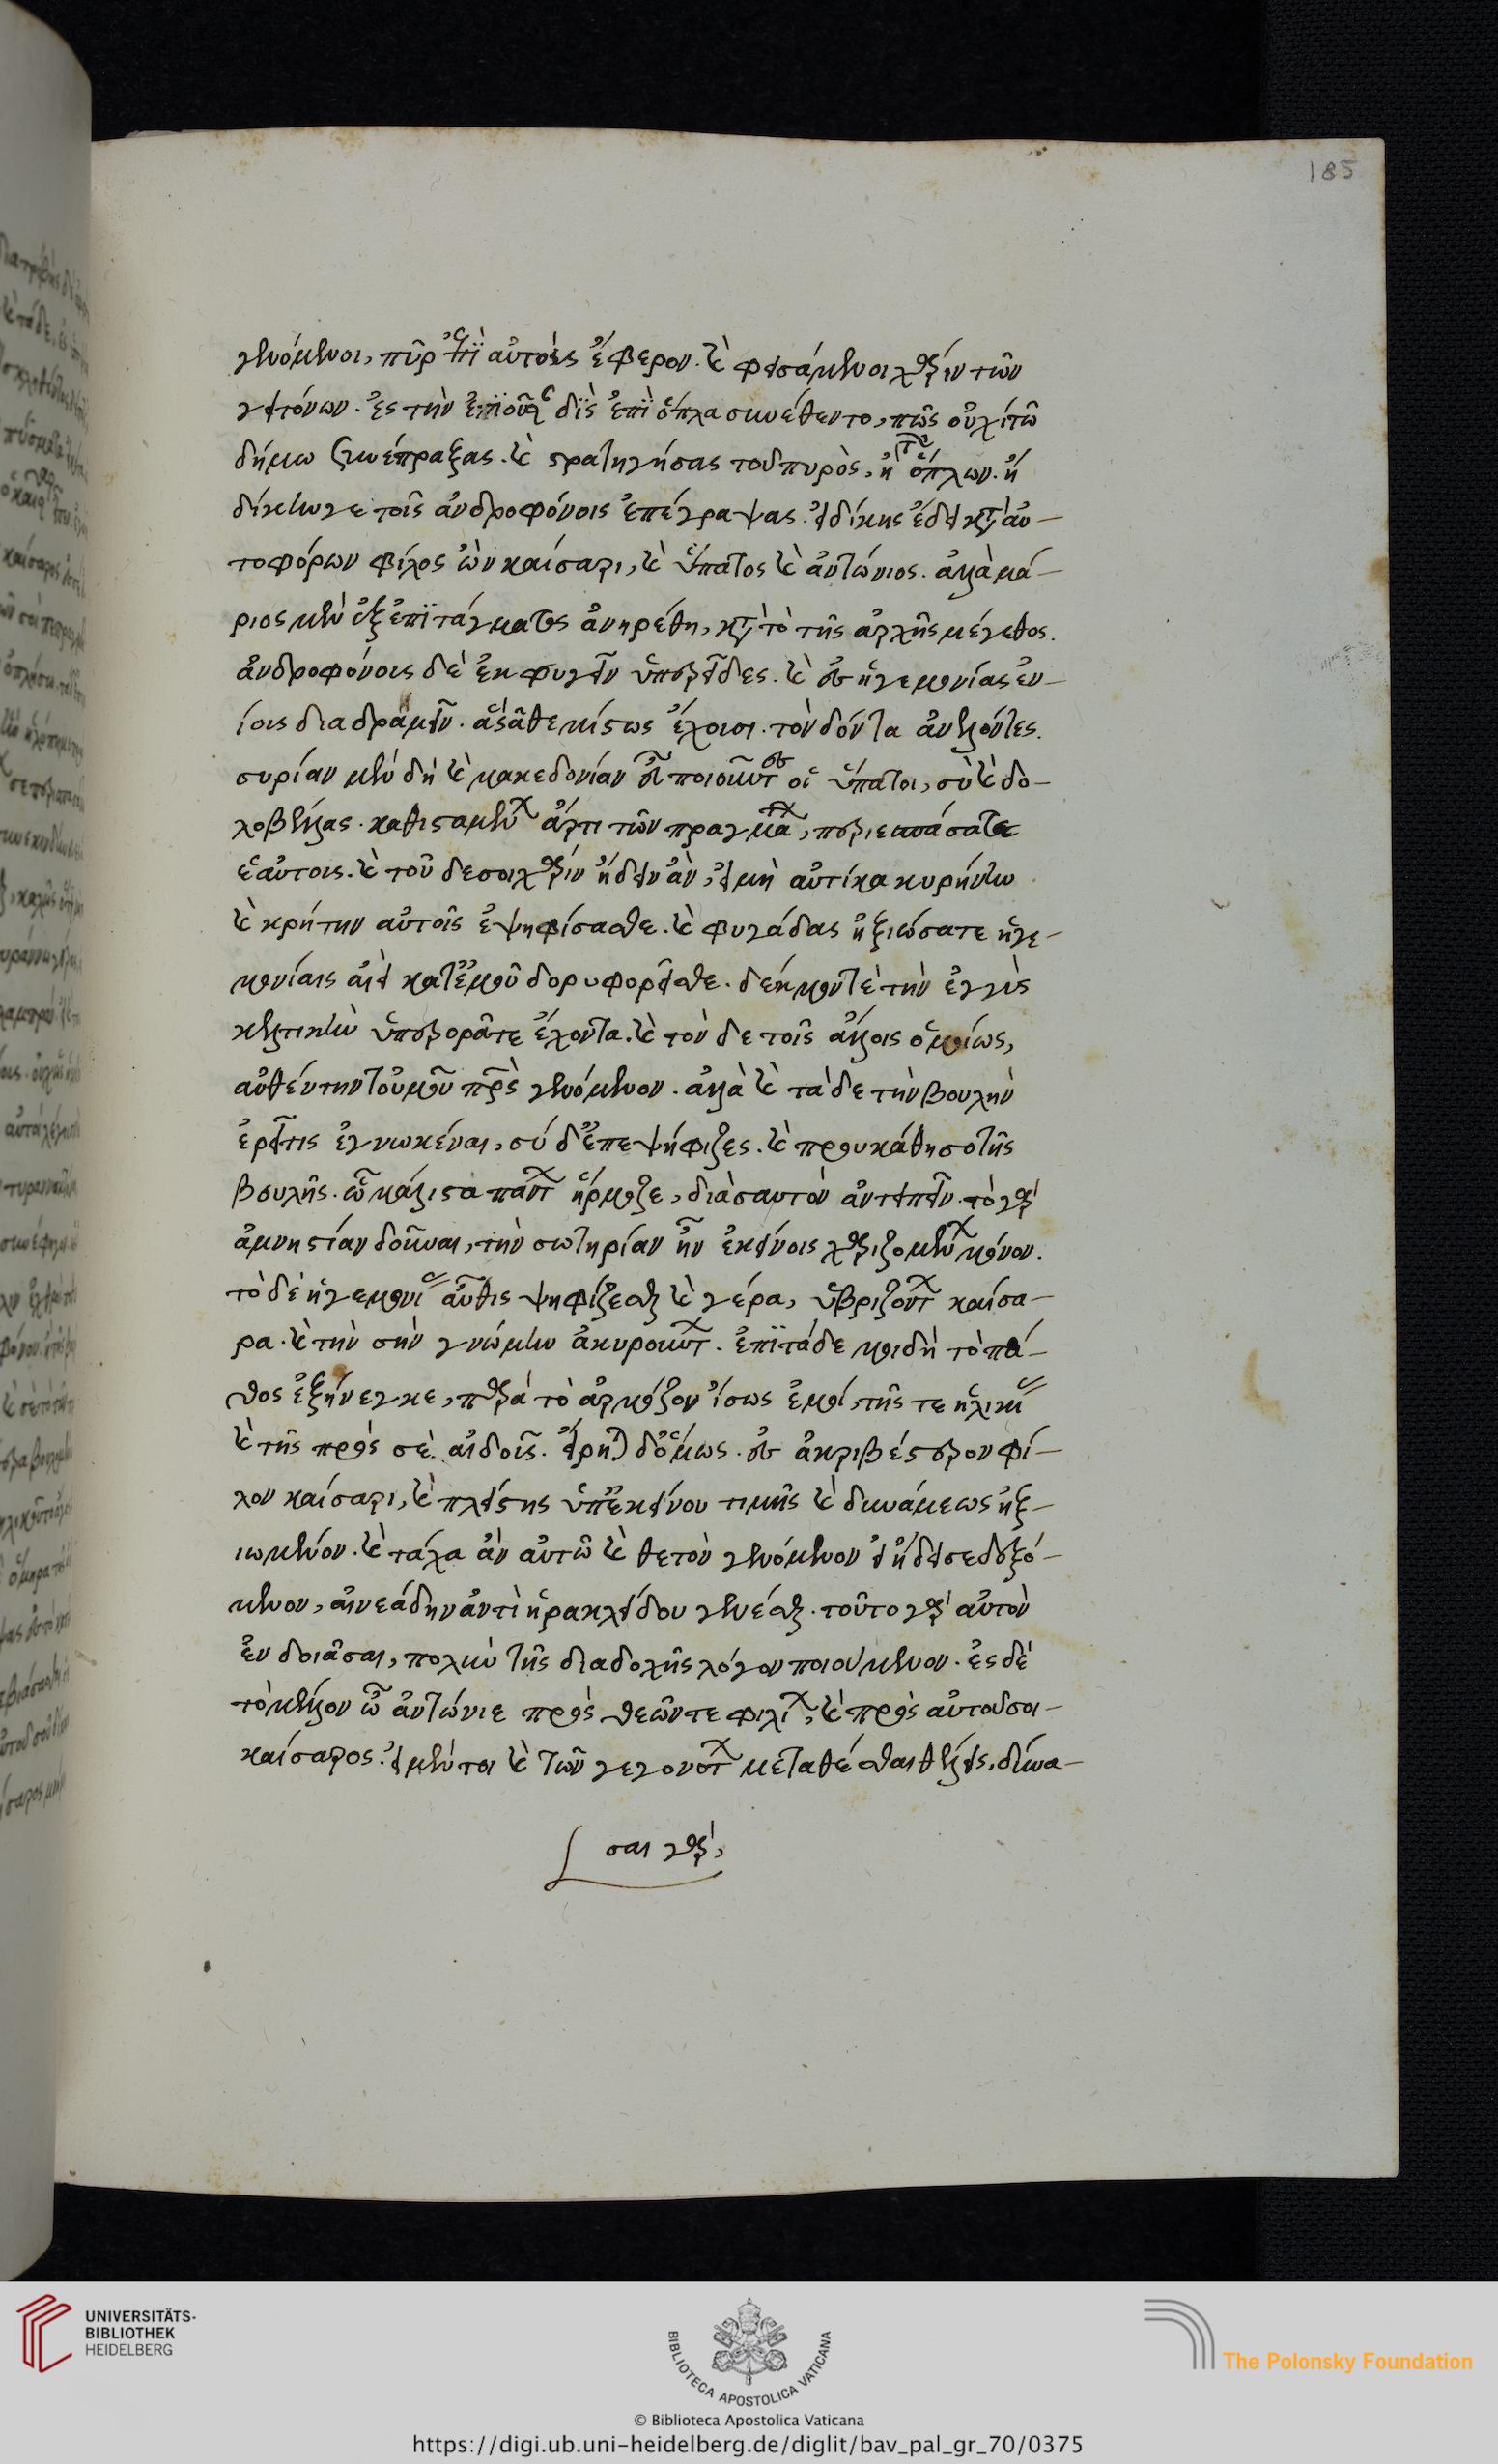 γενόμενοι, πῦρ ἐπὶ αὐτοὺς ἔφερον. καὶ φεισάμενοι χάριν τῶν
γειτόνων. ἐς τὴν ἐπϊοῦσαν δϊς ἐπϊ ὅπλα συνέθεντο, πῶς οὐχὶ τῶ
δήμω συνέπραξας. καὶ στρατηγήσας τοῦ πυρὸς, ἢ τῶν ὅπλων. ἢ
δίκην γε τοῖς ἀνδροφόνοις ἐπέγραψας. εἰ δίκης ἔδει κατὰ αὐ–
τοφόρων φίλος ὢν καίσαρι, καὶ ὕπατος καὶ ἀντώνιος. ἀλλὰ μά–
ριος μὲν ἐξ ἐπϊτάγματος ἀνηρέθη, κατὰ τὸ τῆς ἀρχῆς μέγεθος.
ἀνδροφόνοις δὲ ἐκφυγεῖν ὑπερεῖδες. καὶ ἐς ἡγεμονίας ἐν–
ίοις διαδραμεῖν. ἃς ἀθεμίστως ἔχοισι. τὸν δόντα ἀνελόντες.
συρίαν μὲν δὴ καὶ μακεδονίαν εὖ ποιοῦντες οἱ ὕπατοι, σὺ καὶ δο–
λοβέλλας. καθισταμένων ἄρτι τῶν πραγμάτων, περιεσπάσατε
ἑαυτοις. καὶ τοῦ δε σοι χάριν ἤδειν ἂν, εἰ μὴ αὐτίκα κυρήνην
καὶ κρήτην αὐτοῖς ἐψηφίσασθε. καὶ φυγάδας ἠξιώσατε ἡγε–
μονίαις αἰεὶ κατ' ἐμοῦ δορυφορεῖσθε. δέκμον τὲ τὴν ἐγγὺς
κελτικὴν ὑπερορᾶτε ἔχοντα. καὶ τὸν δε τοῖς ἄλλοις ὁμοίως,
αὐθέντην τοὐμοῦ πατρὸς γενόμενον. ἀλλὰ καὶ τὰ δε τὴν βουλὴν
ἐρεῖ τις ἐγνωκέναι, σύ δ' ἐπεψήφιζες. καὶ προυκάθησο τῆς
βουλῆς. ὧ μάλιστα πάντων ἥρμοζε, διὰ σαυτὸν ἀντειπεῖν. τὸ γὰρ
ἀμνηστίαν δοῦναι, τὴν σωτηρίαν ἦν ἐκείνοις χαριζομένων μόνον.
τὸ δὲ ἡγεμονίας αὖθις ψηφίζεσθαι καὶ γέρα, ὑβριζόντων καίσα–
ρα. καὶ τὴν σὴν γνώμην ἀκυρούντων. ἐπϊ τάδε μοι δὴ τὸ πά–
θος ἐξήνεγκε, παρὰ τὸ ἁρμόζον ἴσως ἐμοί, τῆς τε ἡλικίας
καὶ τῆς πρὸς σὲ αἰδοῦς. εἴρηται δ' ὅμως. ὡς ἀκριβέστερον φί–
λον καίσαρι, καὶ πλείστης ὑπ' ἐκείνου τιμῆς καὶ δυνάμεως ἠξ–
ιωμένον. καὶ τάχα ἂν αὐτῶ καὶ θετὸν γενόμενον εἰ ἤδει σε δεξό–
μενον, αἰνεάδην ἀντὶ ἡρακλείδου γενέσθαι. τοῦτο γὰρ αὐτὸν
ἐνδοιᾶσαι, πολὺν τῆς διαδοχῆς λόγον ποιούμενον. ἐς δὲ
τὸ μέλλον ὦ ἀντώνιε πρὸς θεῶν τε φιλίων, καὶ πρὸς αὐτοῦ σοι
καίσαρος. εἰ μέν τοι καὶ τῶν γεγονότων μεταθέσθαι θέλεις, δύνα–
σαι γὰρ,
185
UNIVERSITÄTS-
BIBLIOTHEK
HEIDELBERG
BIBLIOTECA APOSTOLICA VATICANA
The Polonsky Foundation
© Biblioteca Apostolica Vaticana
https://digi.ub.uni-heidelberg.de/diglit/bav_pal_gr_70/0375